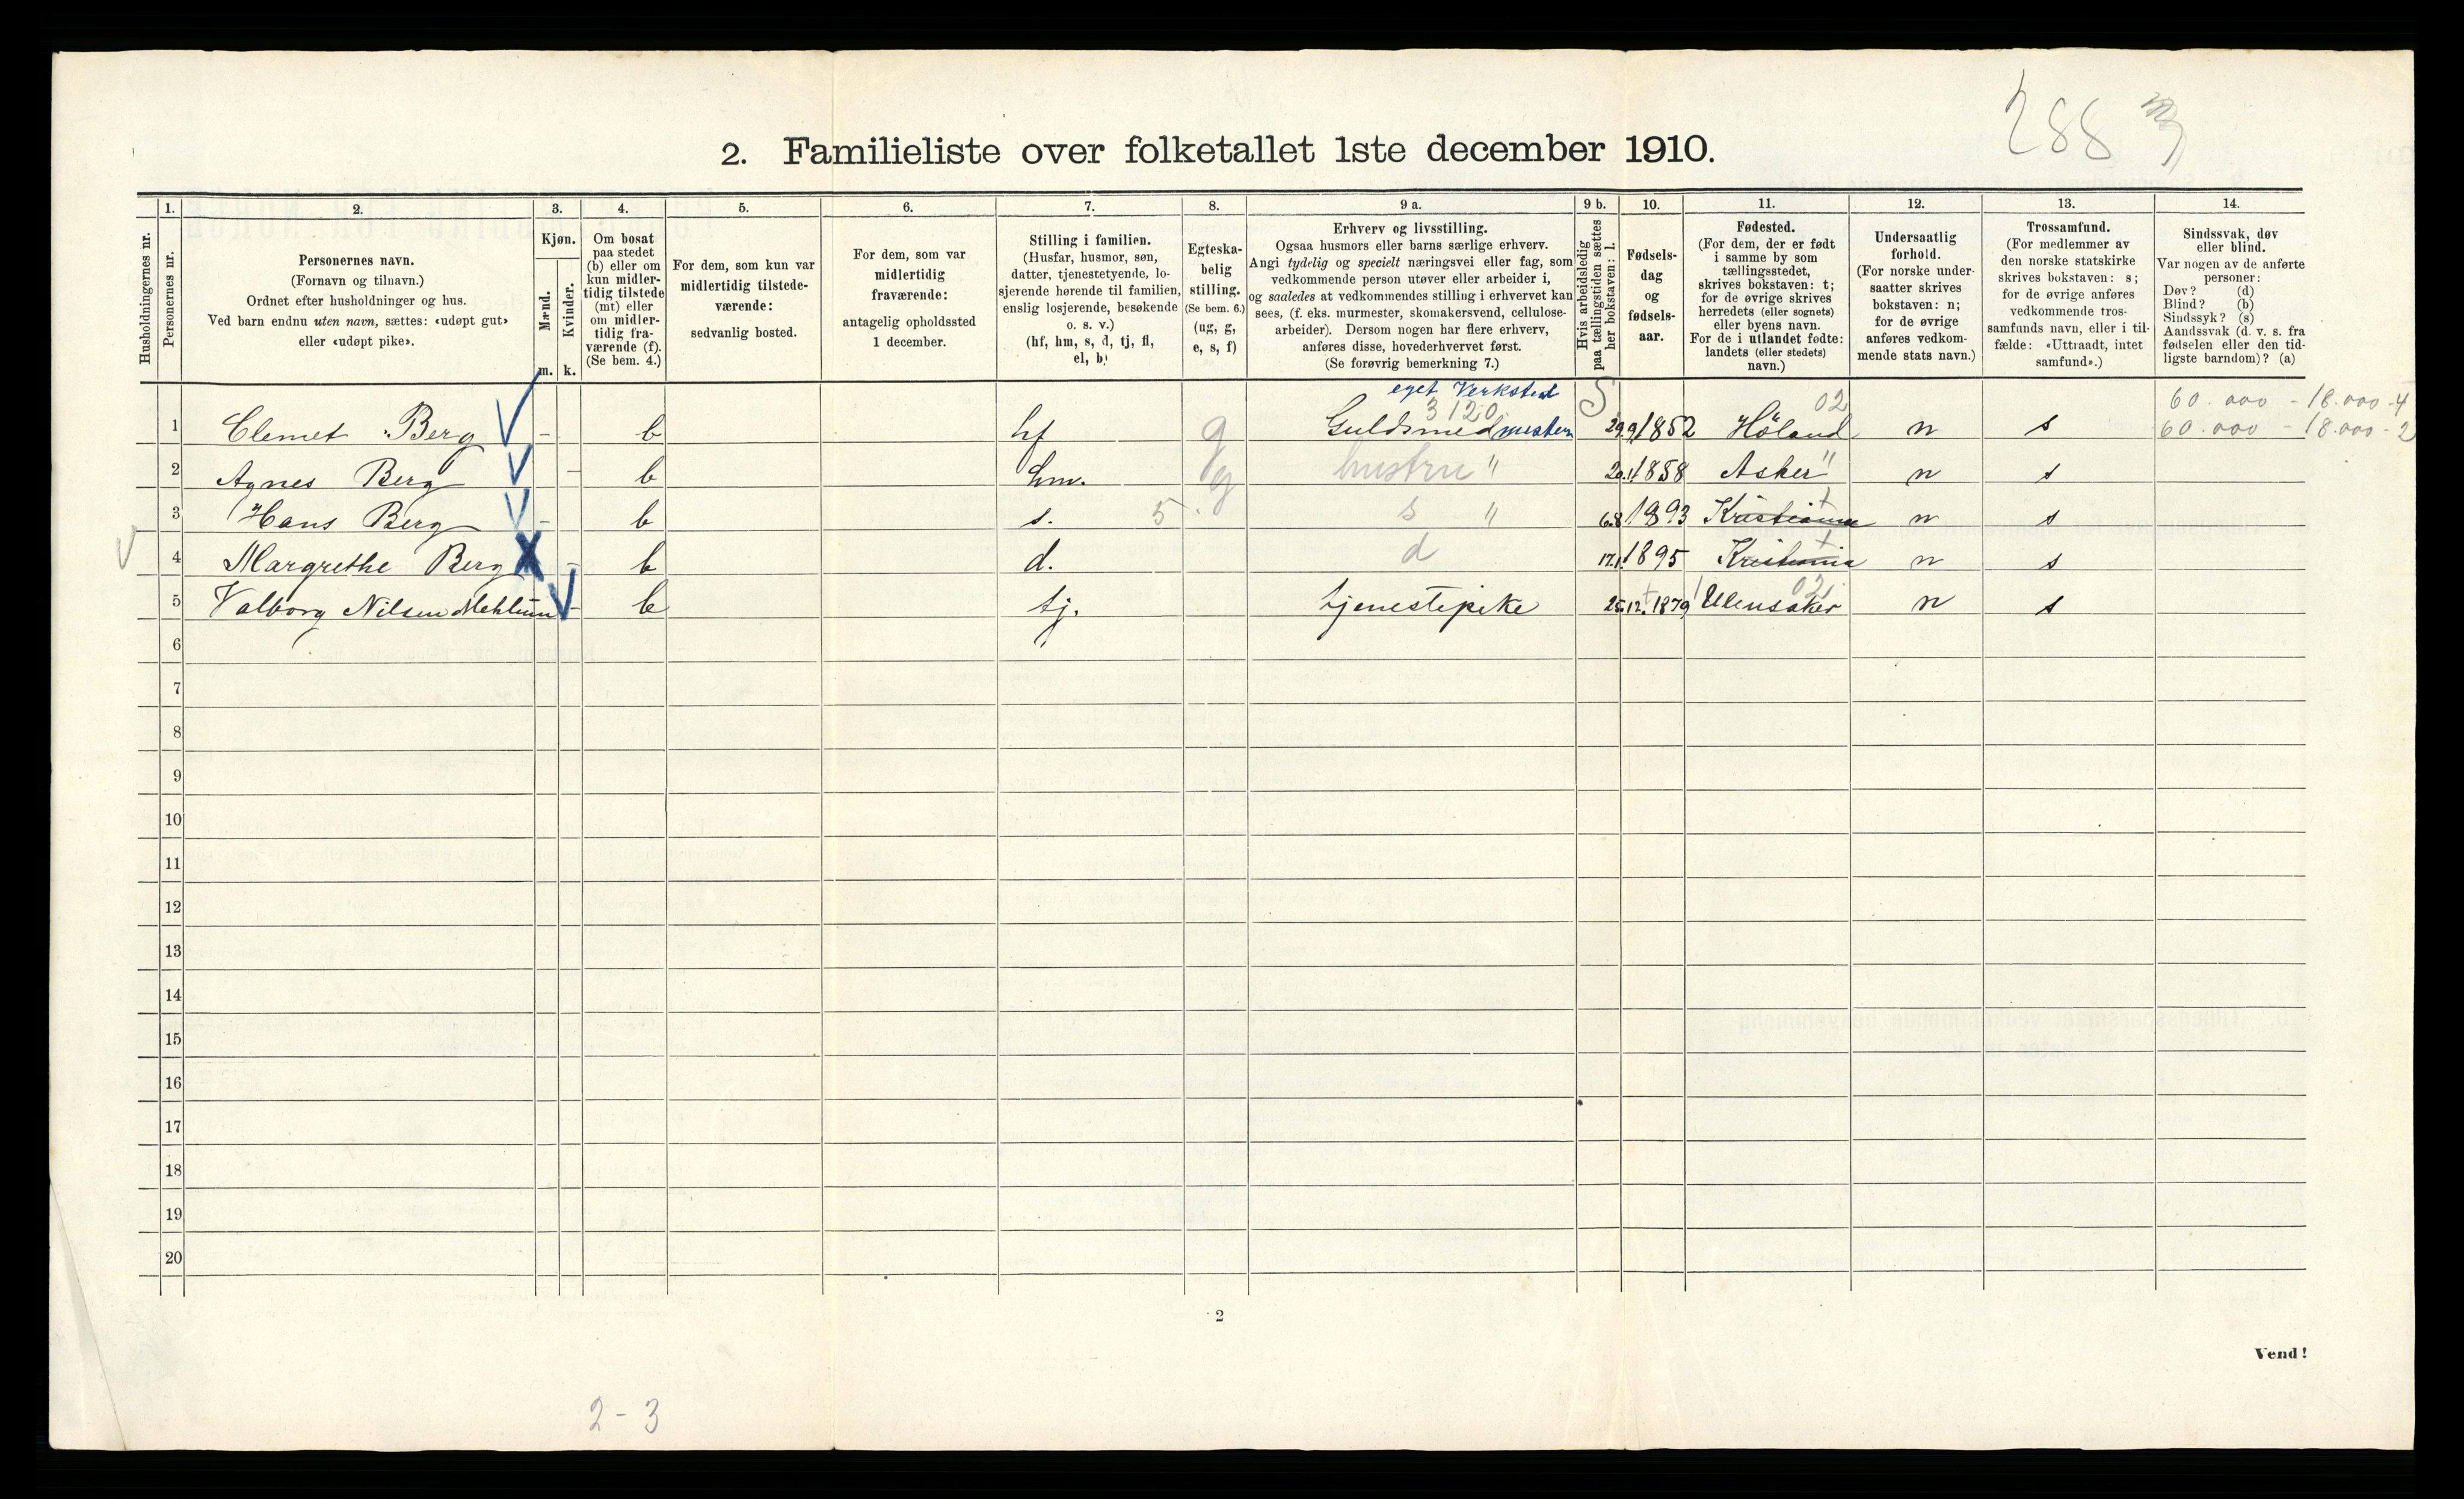 288
2. Familieliste over folketallet 1ste december 1910.
Husholdningernes nr.
1. Personernes nr.
2. Personernes navn.
(Fornavn og tilnavn.)
Ordnet efter husholdninger og hus.
Ved barn endnu uten navn, sættes: «udøpt gut»
eller «udøpt pike».
3. Kjøn.
Mænd. m.
Kvinder. k.
4. Om bosat
paa stedet
(b) eller om
kun midler-
tidig tilstede
(mt) eller
om midler-
tidig fra-
værende (f).
(Se bem. 4.)
5. For dem, som kun var
midlertidig tilstede-
værende:
sedvanlig bosted.
6. For dem, som var
midlertidig
fraværende:
antagelig opholdssted
1 december.
7. Stilling i familien.
(Husfar, husmor, søn,
datter, tjenestetyende, lo-
sjerende hørende til familien,
enslig losjerende, besøkende
o. s. v.)
(hf, hm, s, d, tj, fl,
el, b)
8. Egteska-
belig
stilling.
(Se bem. 6.)
(ug, g,
e, s, f)
9 a. Erhverv og livsstilling.
Ogsaa husmors eller barns særlige erhverv.
Angi tydelig og specielt næringsvei eller fag, som
vedkommende person utøver eller arbeider i,
og saaledes at vedkommendes stilling i erhvervet kan
sees, (f. eks. murmester, skomakersvend, cellulose-
arbeider). Dersom nogen har flere erhverv,
anføres disse, hovederhvervet først.
(Se forøvrig bemerkning 7.)
9 b. Hvis arbeidsledig
paa tællingstiden sættes
her bokstaven: l.
10. Fødsels-
dag
og
fødsels-
aar.
11. Fødested.
(For dem, der er født
i samme by som
tællingsstedet,
skrives bokstaven: t;
for de øvrige skrives
herredets (eller sognets)
eller byens navn.
For de i utlandet fødte:
landets (eller stedets)
navn.)
12. Undersaatlig
forhold.
(For norske under-
saatter skrives
bokstaven: n;
for de øvrige
anføres vedkom-
mende stats navn.)
13. Trossamfund.
(For medlemmer av
den norske statskirke
skrives bokstaven: s;
for de øvrige anføres
vedkommende tros-
samfunds navn, eller i til-
fælde: «Uttraadt, intet
samfund».)
14. Sindssvak, døv
eller blind.
Var nogen av de anførte
personer:
Døv? (d)
Blind? (b)
Sindssyk? (s)
Aandssvak (d. v. s. fra
fødselen eller den tid-
ligste barndom)? (a)
eget Verksted
3120 S 02 60.000 - 18.000 - 4
1 Clemet Berg - b hf g Guldsmedmester 29.9 1852 Höland n s 60.000 - 18.000 - 2
2 Agnes Berg - b hm. g hustru " 20.1 1858 Asker " n s
3 Hans Berg - b s. 5 s " 6.8 1893 Kristiania t n s
4 Margrethe Berg - b d. d 17.1 1895 Kristiania t n s
5 Valborg Nilsen Mehlum - b tj. tjenestepike 25.12.1879 Ullensaker 02 n s
6
7
8
9
10
11
12
13
14
15
16
17
18
19
20
2
Vend!
2-3